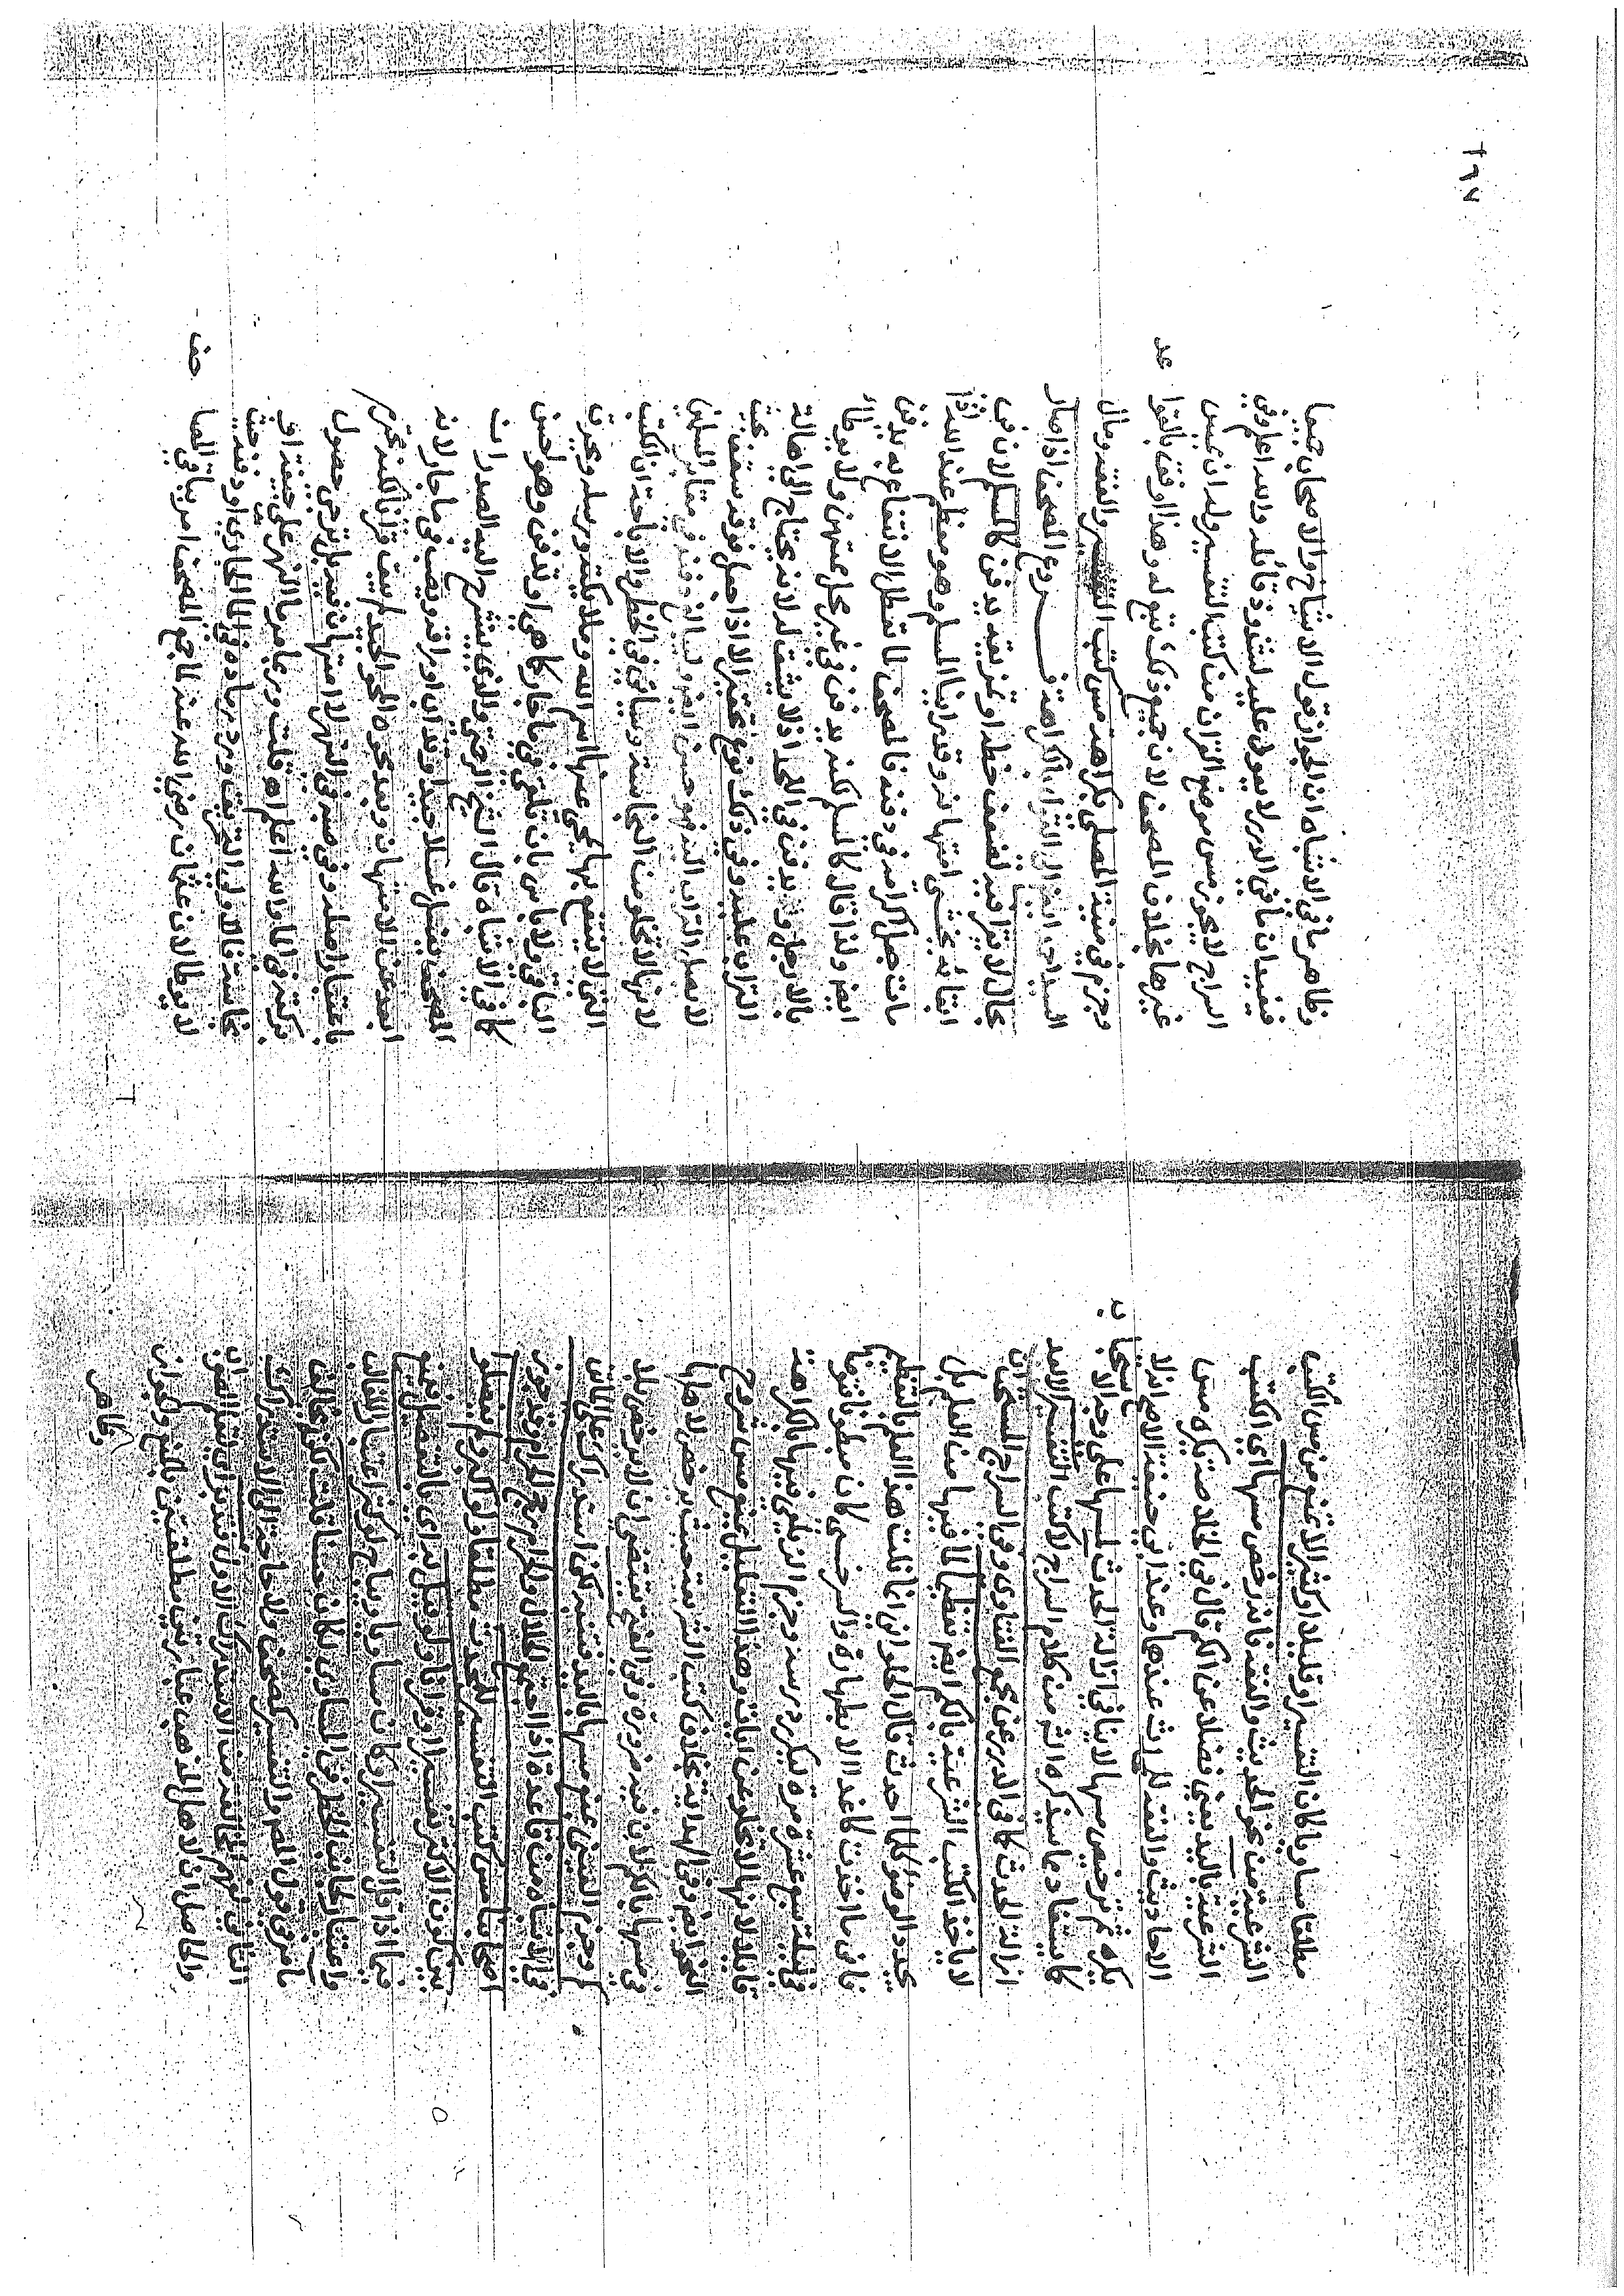 مطلقا مساويا كان التفسير او قليلا او كثيرا لا تمنع من مس الكتب
الشرعية من نحو الحديث والفقه فانه رخص مسها اي الكتب
الشرعية باليد يعني فضلا عن الكم قال في الخلاصة يكره مس
الاحاديث والفقه للمحدث عندهما وعند ابي حنيفة الاصح انه لا
يكره ثم ترخيص مسها لا ينافي ازالة الحدث لمسها على وجه الاستحباب
كما يستفاد مما سيذكره من كلام السراج لا كتب التفسير لا بد
ازالة الحدث كما في الدرر عن مجمع الفتاوى وفي السراج المستحب ان
لا ياخذ الكتب الشرعية بالكم ايضا تعظيما لما فيها من العلم بل
يجدد الوضوء كلما احدث قال الحلواني انما نلت هذا العلم بالتعظيم
فاني ما اخذت كاغدا الا بطهارة والسرخسي كان مبطونا فتوضا
في ليلة سبع عشرة مرة ليكرر درسه وجزم الزيلعي فيها بالكراهة
قايلا لانها لا تخلو عن اياته وهذا التعليل يمنع مس شروح
النحو ايضا وفي الهداية بخلاف كتب الشريعة حيث يرخص لاهلها
في مسها بالكم لان فيه ضرورة وفي الفتح يقتضي ان لا يرخص بلا
وجزم العيني بمنع مسها باليد فتنبه لكن استدراك على المتن
في الاشباه من قاعدة اذا اجتمع الحلال والحرام رجح الحرام وقد جوز
اصحابنا مس كتب التفسير للمحدث مطلقا ولم يفصلوا
بين كون الاكثر تفسيرا او قرانا ولو قيل به اي بالتفصيل
فيما اذا كان التفسير
واعتبارا بجانب الحظر في المساوي لكان حسنا قلت لكنه يخالف
ما مر في قول المص والتفسير كمصحف ولا حاجة الى الاستدراك
الثاني لفهم المخالفة من الاستدراك الاول فتدبر
والحاصل ان لاهل المذهب عبارتين مطلقتين بالمنع والجواز
وظاهر
٢٩٧
وظاهر ما في الاشباه ان الجواز قول الاشياخ والاصحاب جميعا
فيفيد ان ما في الدرر لا يعول عليه لشذوذ قائله والله اعلم وفي
السراج لا يجوز مس موضع القران من كتب التفسير وله ان يمس
غيرها بخلاف المصحف لان جميع ذلك تبع له وهذا اوفق بالقواعد
وجزم في منية المصلي بكراهة مس كتب التفسير والفقه وقال
السيد ابي الكراهة فــروع المصحف اذا صار
بحال لا يقرا فيه لضعف خطه او تمزيقه يدفن كالمسلم لان في
ابقائه يخشى امتهانه وقد راينا المسلم وهو معظم عند الله اذا
مات جعل اكرامه في دفنه فالمصحف لما تعطل الانتفاع به يدفن
ايضا ولذا قال كالمسلم لكنه يدفن في غير محل ممتهن ولا يوطا
بالارجل ويدفن في اللحد اذ لا يشق له لانه يحتاج الى اهالة
التراب عليه وفي ذلك نوع تحقير الا اذا جعل فوقه سقف بحيث
لا يصل التراب اليه فهو حسن ايضا دفنه في مقابر المسلمين
لانها لا تخلو من النجاسة وسياتي في الحظر والاباحة ان الكتب
التي لا ينتفع بها يمحى عنها اسم الله وملائكته ورسله ويحرق
الباقي ولا باس بان تلقى في ماء جار كما هي او تدفن وهو احسن
كما في الاشباه قال الشيخ الرحمتي والذي ينشرح اليه الصدر ان
المصحف يغسل غسلا جيدا وتذاب اوراقه ويصب في ماء جار لانه
ابعد عن الامتهان وبعد محوه المحو الجيد لم يبق قرانا لكنه يحترم
باعتبار اصله وفي صبه في النهر لا امتهان فيه
وركته في الماء والله اعلم اهـ قلت
نجاسة فالاولى التحريق ويرد رماده في الماء الجاري او دفنه
لا يوطا لان عثمان رضي الله عنه لما جمع المصحف امر بباقي المصاحف